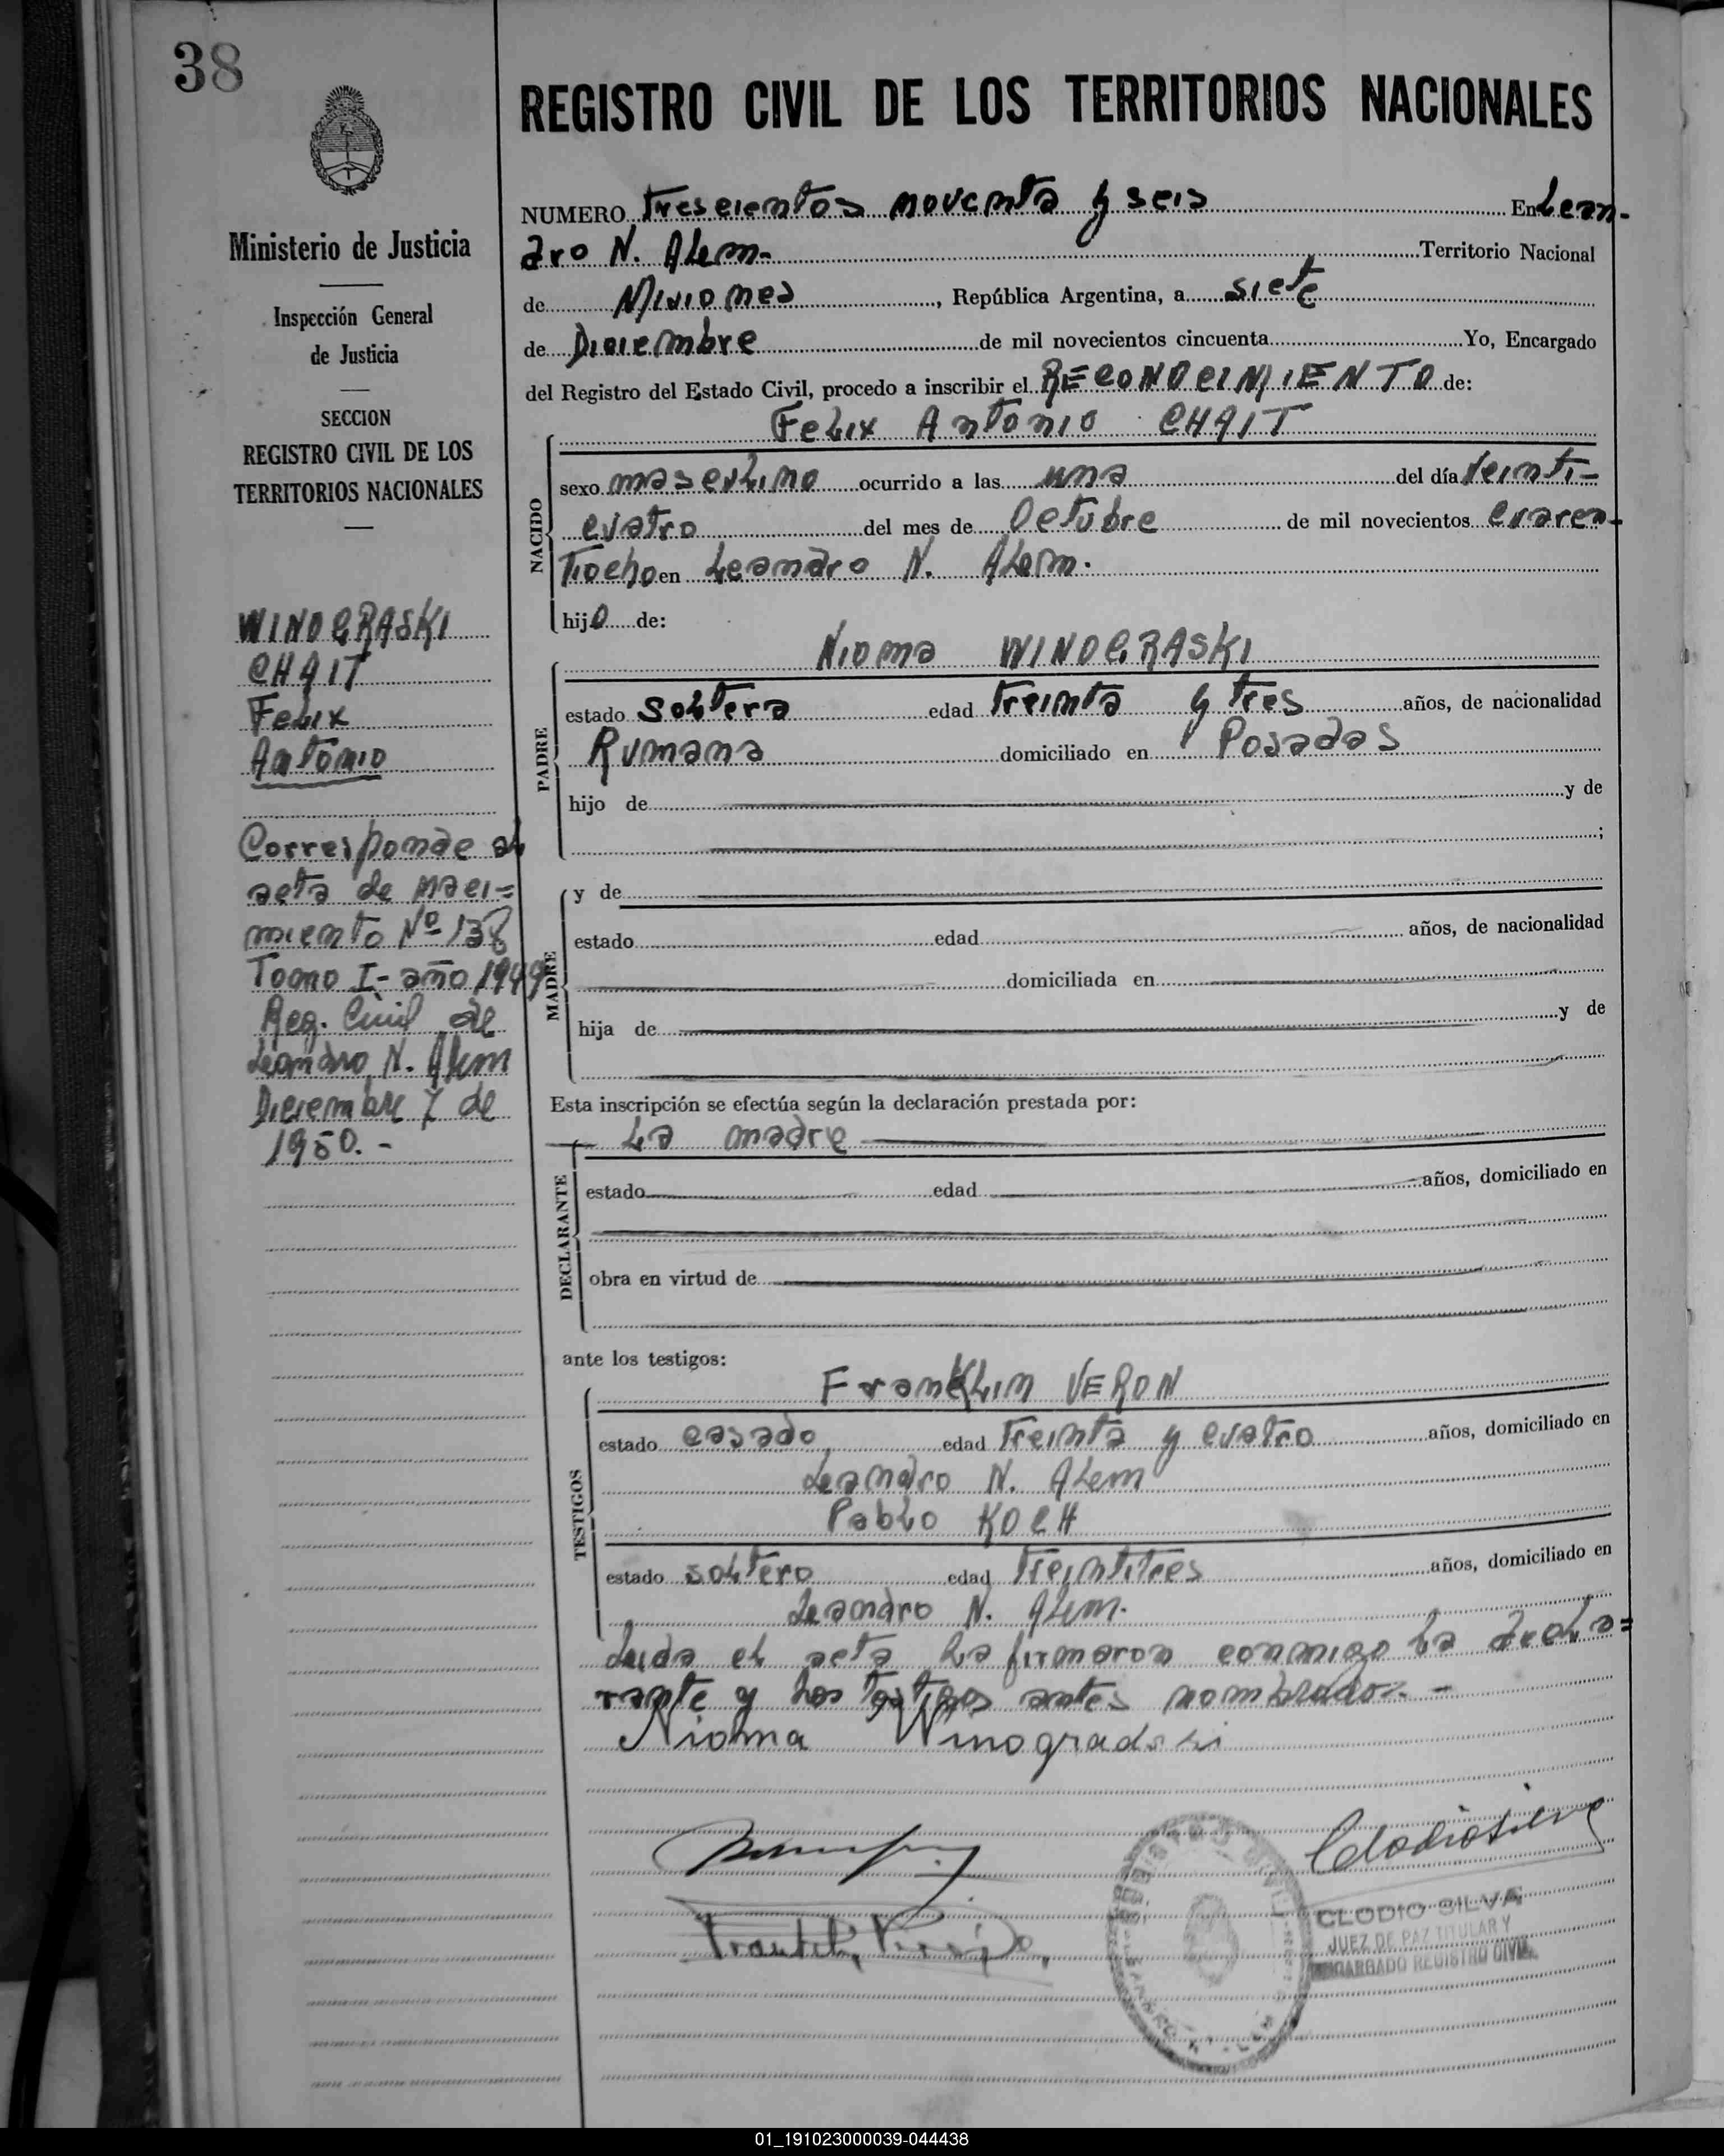 38
REGISTRO CIVIL DE LOS TERRITORIOS NACIONALES
NUMERO Trescientos noventa y seis En Lean-
dro N. Alem- Territorio Nacional
de Misiones, República Argentina, a siete
de Diciembre de mil novecientos cincuenta Yo, Encargado
del Registro del Estado Civil, procedo a inscribir el RECONOCIMIENTO de:
Felix Antonio CHAIT
NACIDO
sexo masculino ocurrido a las una del día Veinti-
cuatro del mes de Octubre de mil novecientos cuaren-
tiocho en Leandro N. Alem.
hijo de:
Nioma WINOGRASKI
PADRE
estado soltera edad treinta y tres años, de nacionalidad
Rumana domiciliado en Posadas
hijo de y de
;
MADRE
y de
estado edad años, de nacionalidad
domiciliada en
hija de y de
Esta inscripción se efectúa según la declaración prestada por:
La madre
DECLARANTE
estado edad años, domiciliado en
obra en virtud de
ante los testigos:
Franklin VERON
TESTIGOS
estado casado, edad treinta y cuatro años, domiciliado en
Leandro N. Alem
Pablo KOCH
estado soltero edad treintitres años, domiciliado en
Leandro N. Alem.
Leida el acta la firmaron conmigo la decla=
rante y los testigos antes nombrados.-
Nioma Winogradski
CLODIO SILVA
JUEZ DE PAZ TITULAR Y
ENCARGADO REGISTRO CIVIL
Ministerio de Justicia
Inspección General
de Justicia
SECCION
REGISTRO CIVIL DE LOS
TERRITORIOS NACIONALES
WINOGRASKI
CHAIT
Felix
Antonio
Corresponde al
acta de naci=
miento Nº 138
Tomo I- año 1949
Reg. Civil de
Leandro N. Alem
Diciembre 7 de
1950.-
01_191023000039-044438